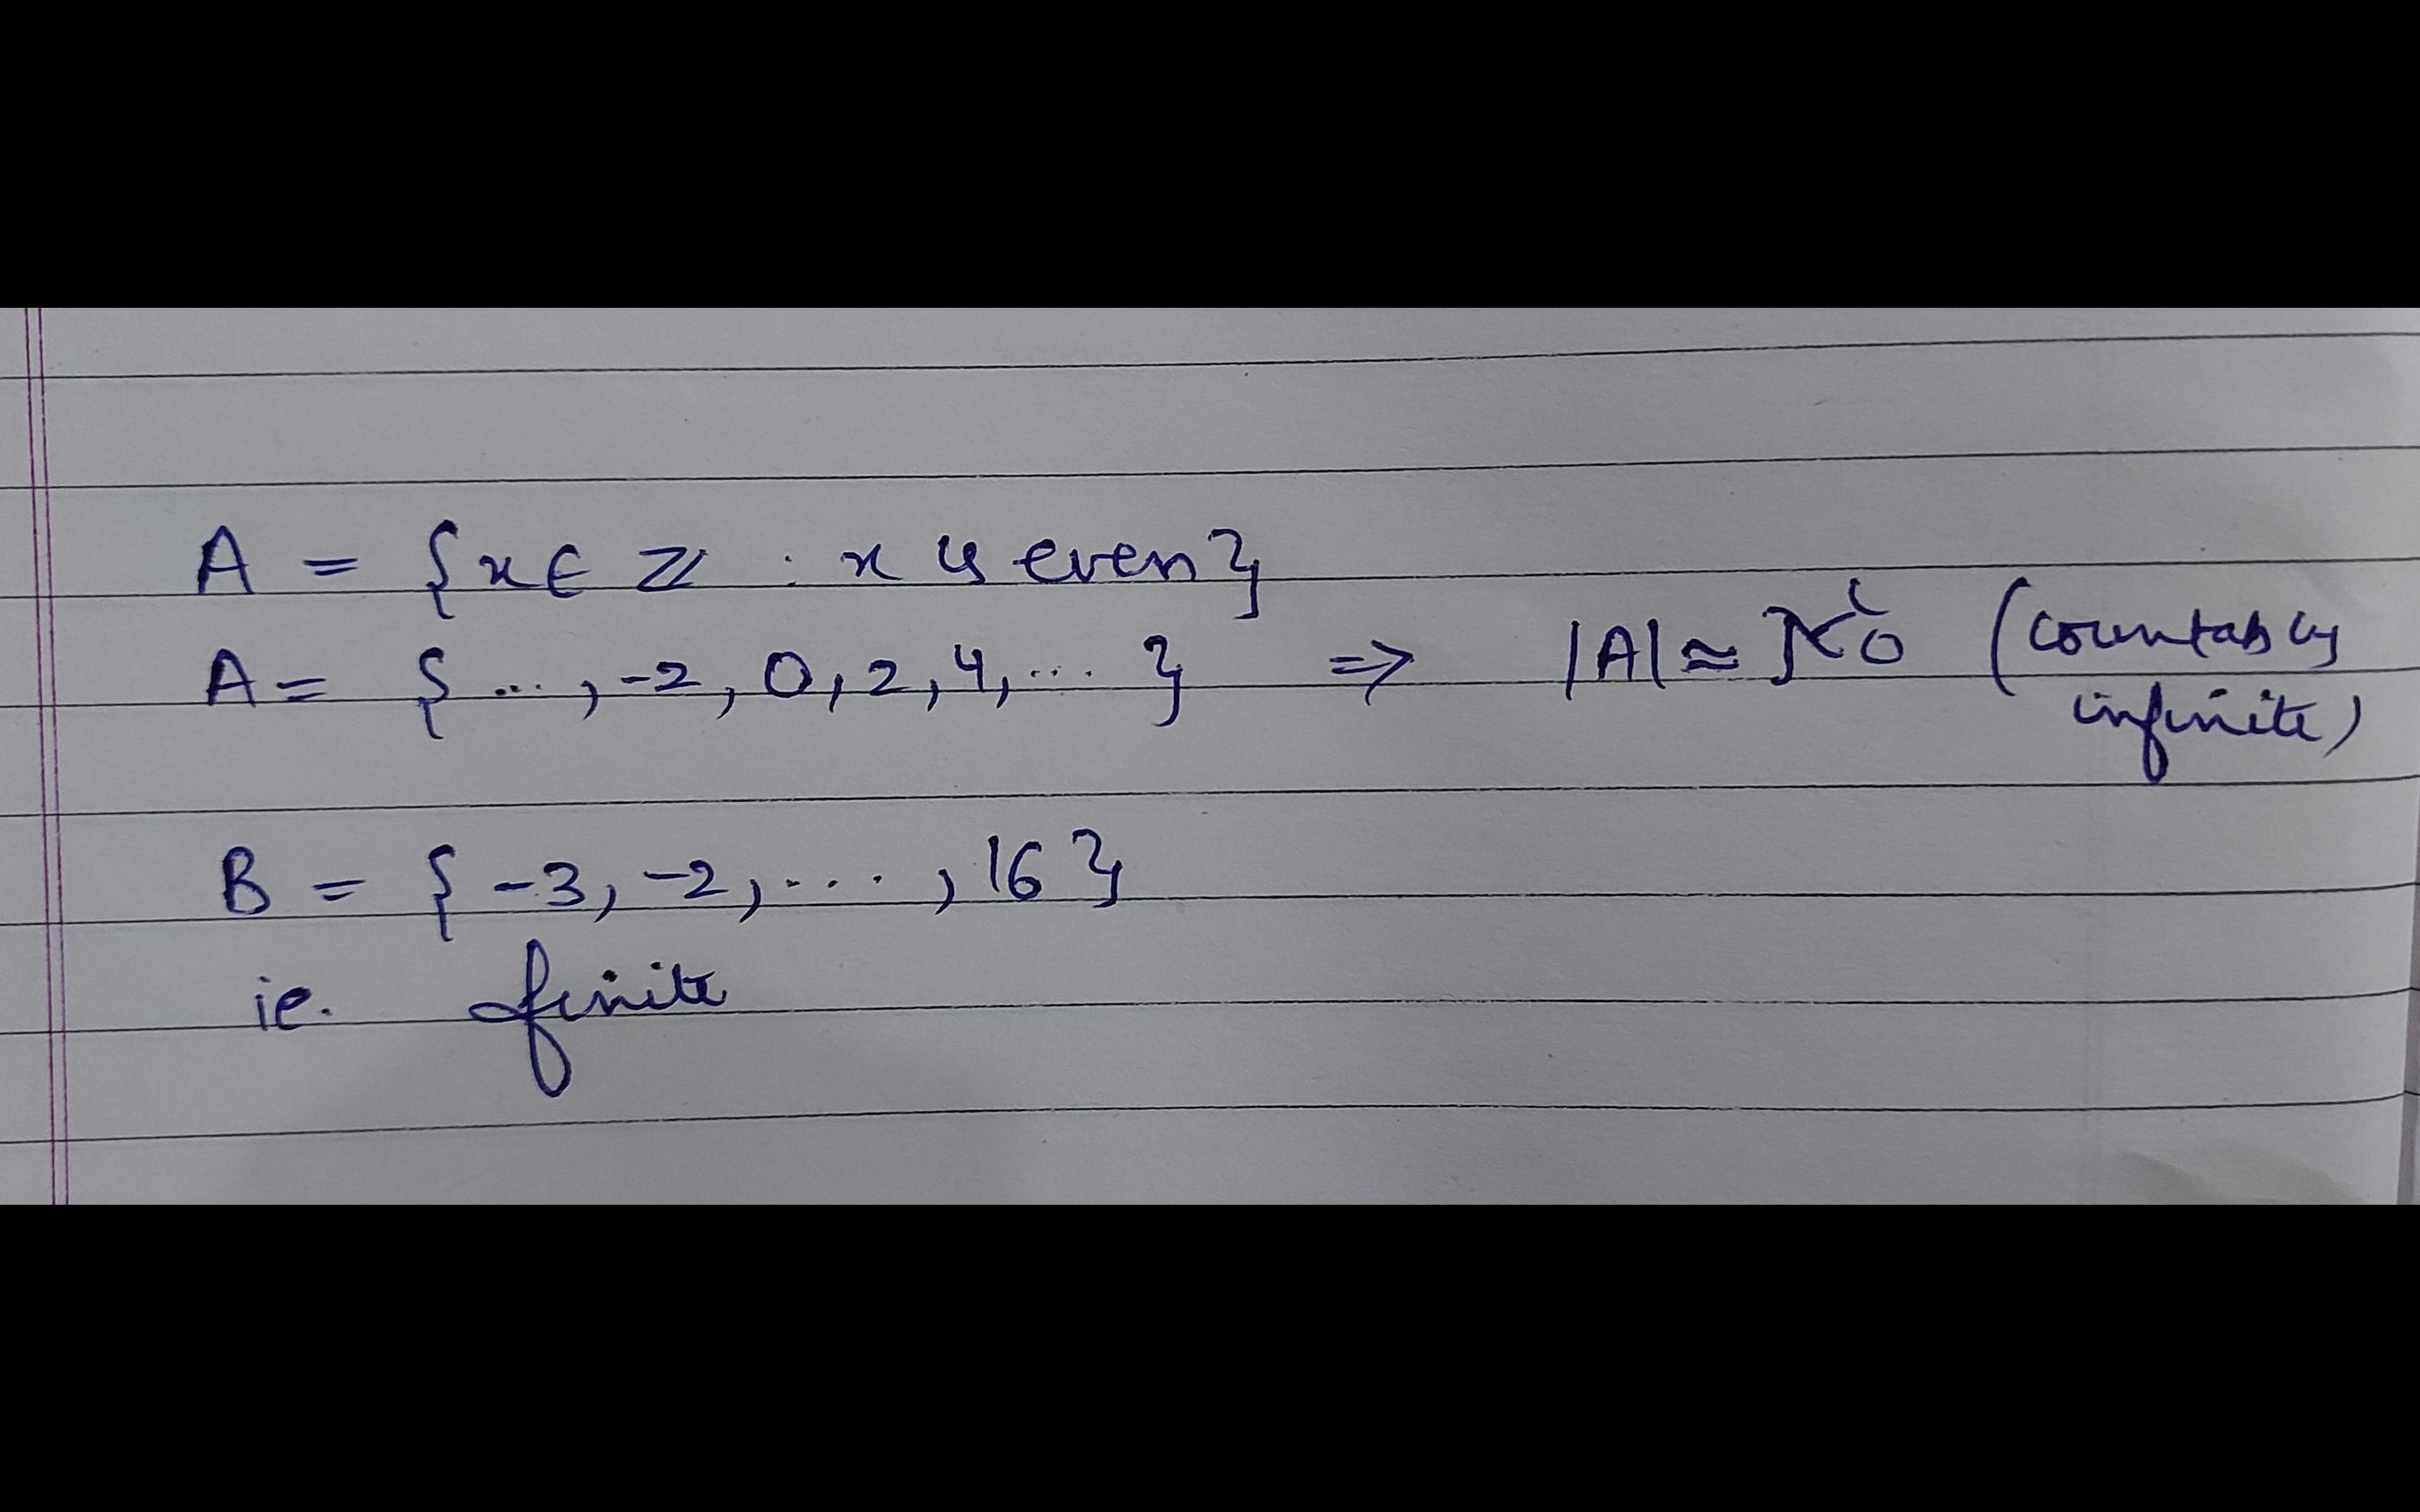 A = {x ∈ ℤ : x is even}
A = {..., -2, 0, 2, 4, ... } ⇒ |A| ≈ ℵ0 (countably
infinite)
B = { -3, -2, ...., 16 }
ie. finite